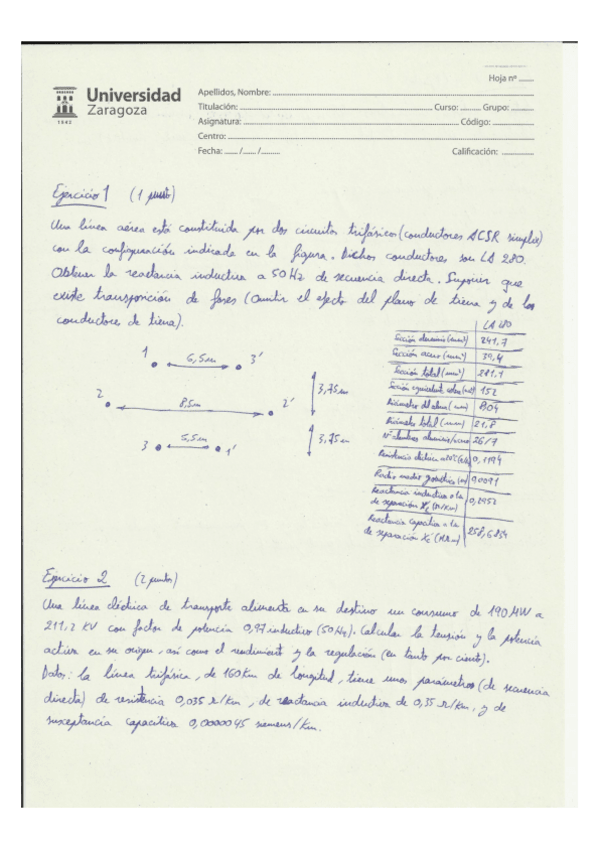 Hoja nº
Universidad
Zaragoza
1542
Apellidos, Nombre:
Titulación: Curso: Grupo:
Asignatura: Código:
Centro:
Fecha: / / Calificación:
Ejercicio 1 (1 punto)
Una línea aérea está constituida por dos circuitos trifásicos (conductores ACSR simplex)
con la configuración indicada en la figura. Dichos conductores son LA 280.
Obtener la reactancia inductiva a 50 Hz de secuencia directa. Suponer que
existe transposición de fases (Omitir el efecto del plano de tierra y de los
conductores de tierra).
LA 280
Sección aluminio (mm²) 241,7
Sección acero (mm²) 39,4
Sección total (mm²) 281,1
Sección equivalente cobre (mm²) 152
Diámetro del alma (mm) 8,04
Diámetro total (mm) 21,8
Nº alambres aluminio/acero 26/7
Resistencia eléctrica a 20ºC 0,1194
Radio medio geométrico (m) 0,0091
Reactancia inductiva a 1m
de separación (Ω/Km) 0,2952
Reactancia capacitiva a 1m
de separación (MΩ·Km) 258,6834
1 6,5m 3'
2 8,5m 2'
3 5,5m 1'
3,75m
3,75m
Ejercicio 2 (2 puntos)
Una línea eléctrica de transporte alimenta en su destino un consumo de 190 MW a
211,2 KV con factor de potencia 0,97 inductivo (50 Hz). Calcular la tensión y la potencia
activa en su origen, así como el rendimiento y la regulación (en tanto por ciento).
Datos: la línea trifásica, de 160 Km de longitud, tiene unos parámetros (de secuencia
directa) de resistencia 0,035 Ω/Km, de reactancia inductiva de 0,35 Ω/Km, y de
susceptancia capacitiva 0,0000045 siemens/Km.